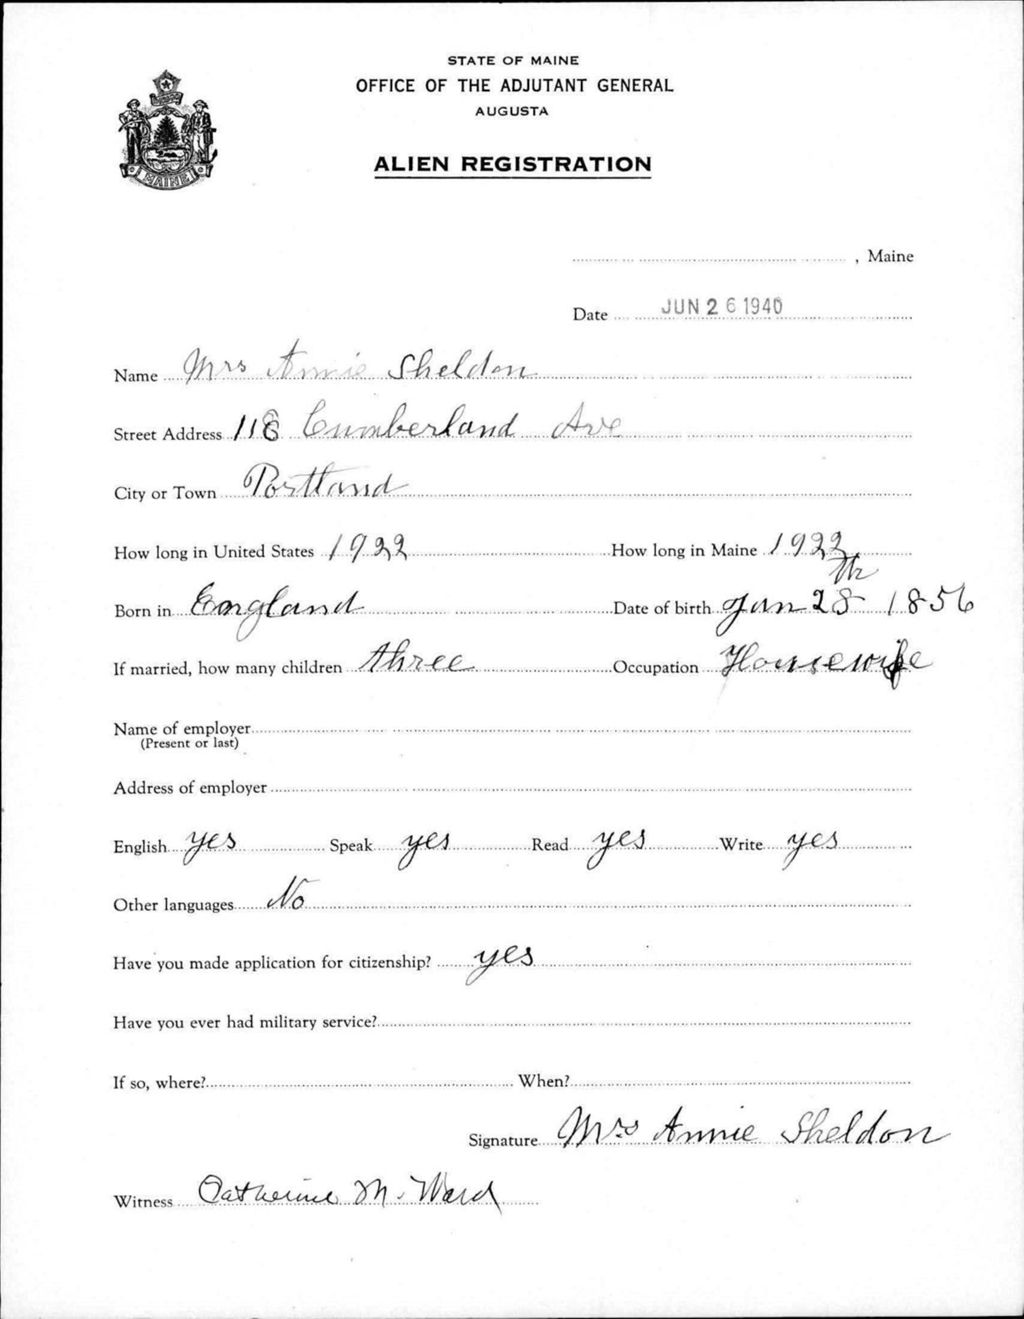 STATE OF MAINE
OFFICE OF THE ADJUTANT GENERAL
AUGUSTA
ALIEN REGISTRATION
MAINE
, Maine
Date JUN 26 1940
Name Mrs Annie Sheldon
Street Address 118 Cumberland Ave
City or Town Portland
How long in United States 1922 How long in Maine 1922
Born in England Date of birth Jan 28th 1856
If married, how many children three Occupation Housewife
Name of employer
(Present or last)
Address of employer
English yes Speak yes Read yes Write yes
Other languages No
Have you made application for citizenship? yes
Have you ever had military service?
If so, where? When?
Signature Mrs Annie Sheldon
Witness Catherine M. Ward